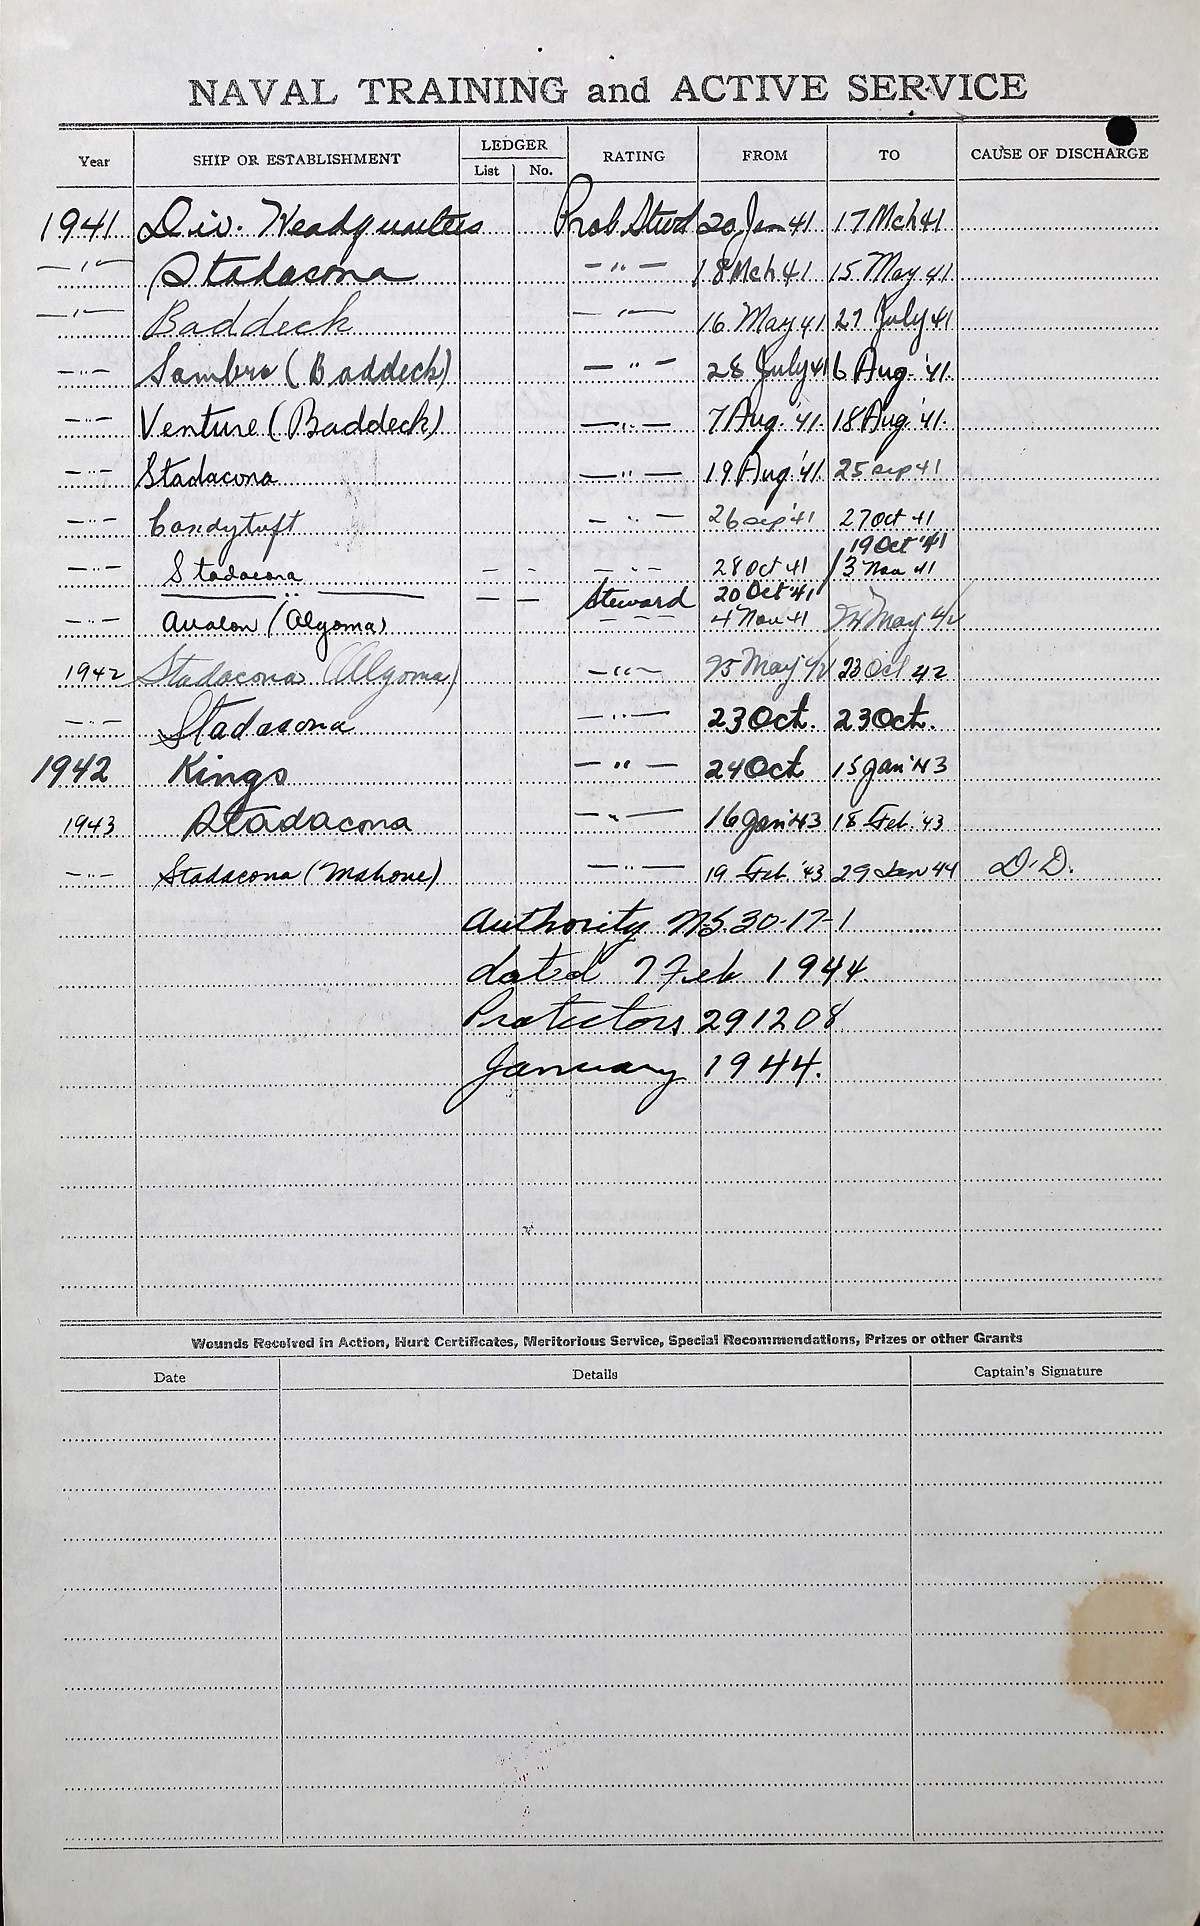 NAVAL TRAINING and ACTIVE SERVICE
Year SHIP OR ESTABLISHMENT LEDGER List No. RATING FROM TO CAUSE OF DISCHARGE
1941 Div. Headquarters Prob. Stwd 20 Jan 41 17 Mch 41
—"— Stadacona —"— 18 Mch 41 15 May 41
—"— Baddeck —"— 16 May 41 27 July 41
—"— Sambro (Baddeck) —"— 28 July 41 6 Aug. '41.
—"— Venture (Baddeck) —"— 7 Aug. '41. 18 Aug. '41.
—"— Stadacona —"— 19 Aug '41. 25 sep 41
—"— Candytuft —"— 26 sep '41 27 Oct 41
19 Oct '41
—"— Stadacona — — —"— 28 Oct 41 3 Nov 41
—— " —— — — Steward 20 Oct '41
—"— Avalon (Algoma) — — — 4 Nov 41 24 May 4/2
1942 Stadacona (Algoma) —"— 25 May 4/2 23 Oct 42
—"— Stadacona —"— 23 Oct. 23 Oct.
1942 Kings —"— 24 Oct 15 Jan '43
1943 Stadacona —"— 16 Jan '43 18 Feb. '43
—"— Stadacona (Mahone) —"— 19 Feb. '43 29 Jan 44 D.D.
Authority NS. 30-17-1
dated 7 Feb 1944.
Protectors 291208
January 1944.
Wounds Received in Action, Hurt Certificates, Meritorious Service, Special Recommendations, Prizes or other Grants
Date Details Captain's Signature